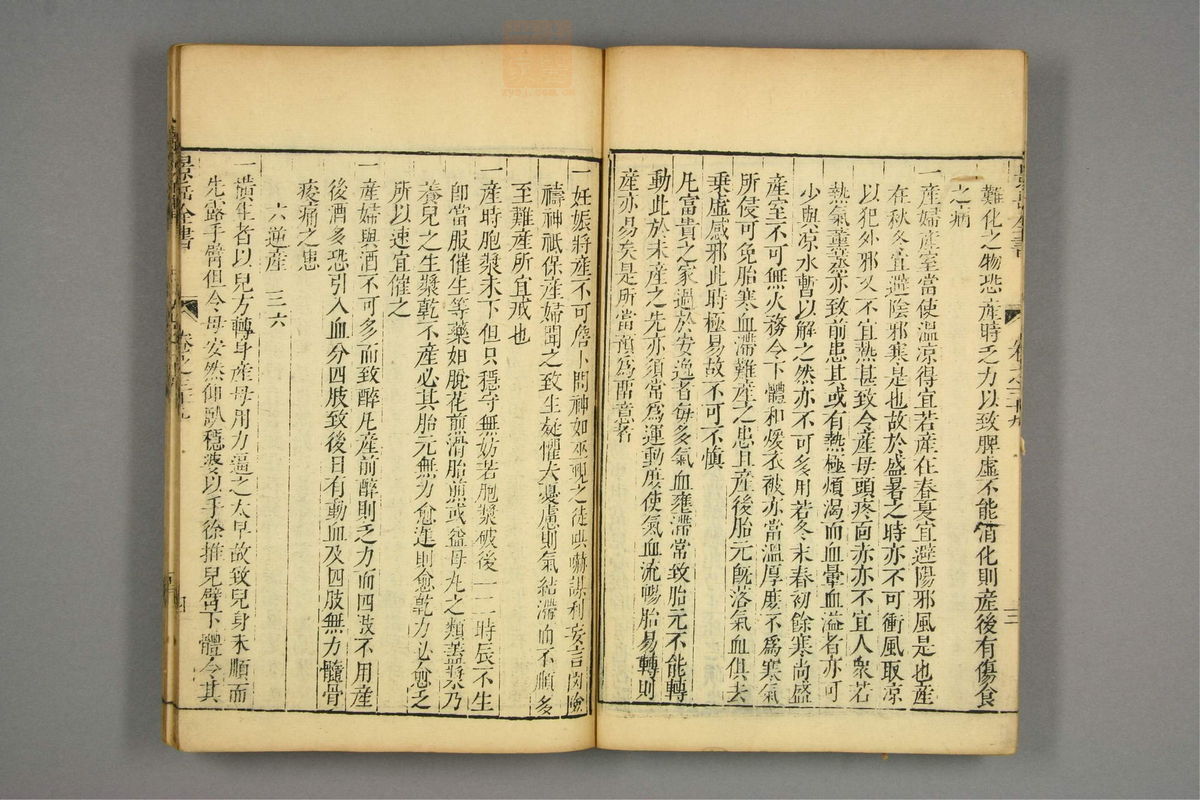 難化之物恐產時乏力以致脾虛不能消化則產後有傷食
之病
一產婦產室當使溫凉得宜若產在春夏宜避陽邪風是也產
在秋冬宜避陰邪寒是也故於盛暑之時亦不可衝風取凉
以犯外邪又不宜熱甚致令產母頭疼面赤亦不宜人衆若
熱氣薰蒸亦致前患其或有熱極煩渴而血暈血溢者亦可
少與凉水暫以解之然亦不可多用若冬末春初餘寒尚盛
產室不可無火務令下體和煖衣被亦當溫厚庶不爲寒氣
所侵可免胎寒血滯難產之患且產後胎元旣落氣血俱去
乗虛感邪此時極易故不可不愼
凡富貴之家過於安逸者每多氣血壅滯常致胎元不能轉
動此於未產之先亦須常爲運動庶使氣血流暢胎易轉則
產亦易矣是所當預爲留意者
景岳全書
卷之三十九
三
一妊娠將產不可詹卜問神如巫覡之徒哄嚇謀利妄言凶險
禱神祇保產婦聞之致生疑懼夫憂慮則氣結滯而不順多
至難產所宜戒也
一產時胞漿未下但只穩守無妨若胞漿破後一二時辰不生
卽當服催生等藥如脫花煎滑胎煎或益母丸之類蓋漿乃
養兒之生漿乾不產必其胎元無力愈遲則愈乾力必愈乏
所以速宜催之
一產婦與酒不可多而致醉凡產前醉則乏力而四肢不用產
後酒多恐引入血分四肢致後日有動血及四肢無力髓骨
痠痛之患
六逆產 三六
一橫生者以兒方轉身產母用力逼之太早故致兒身未順而
先露手臂但令母安然仰臥穩婆以手徐推兒臂下體令其
景岳全書
卷之三十九
四